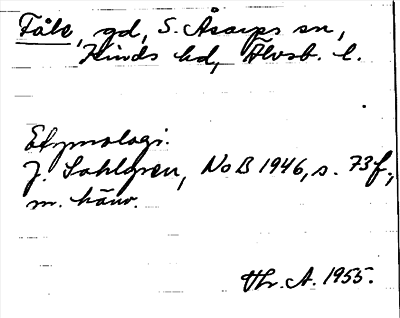 Tåle, gd, S. Åsarps sn,
Kinds hd, Älvsb. l.
Etymologi.
J. Sahlgren, NoB 1946, s. 73f.,
m. hänv.
Hr. A. 1955.